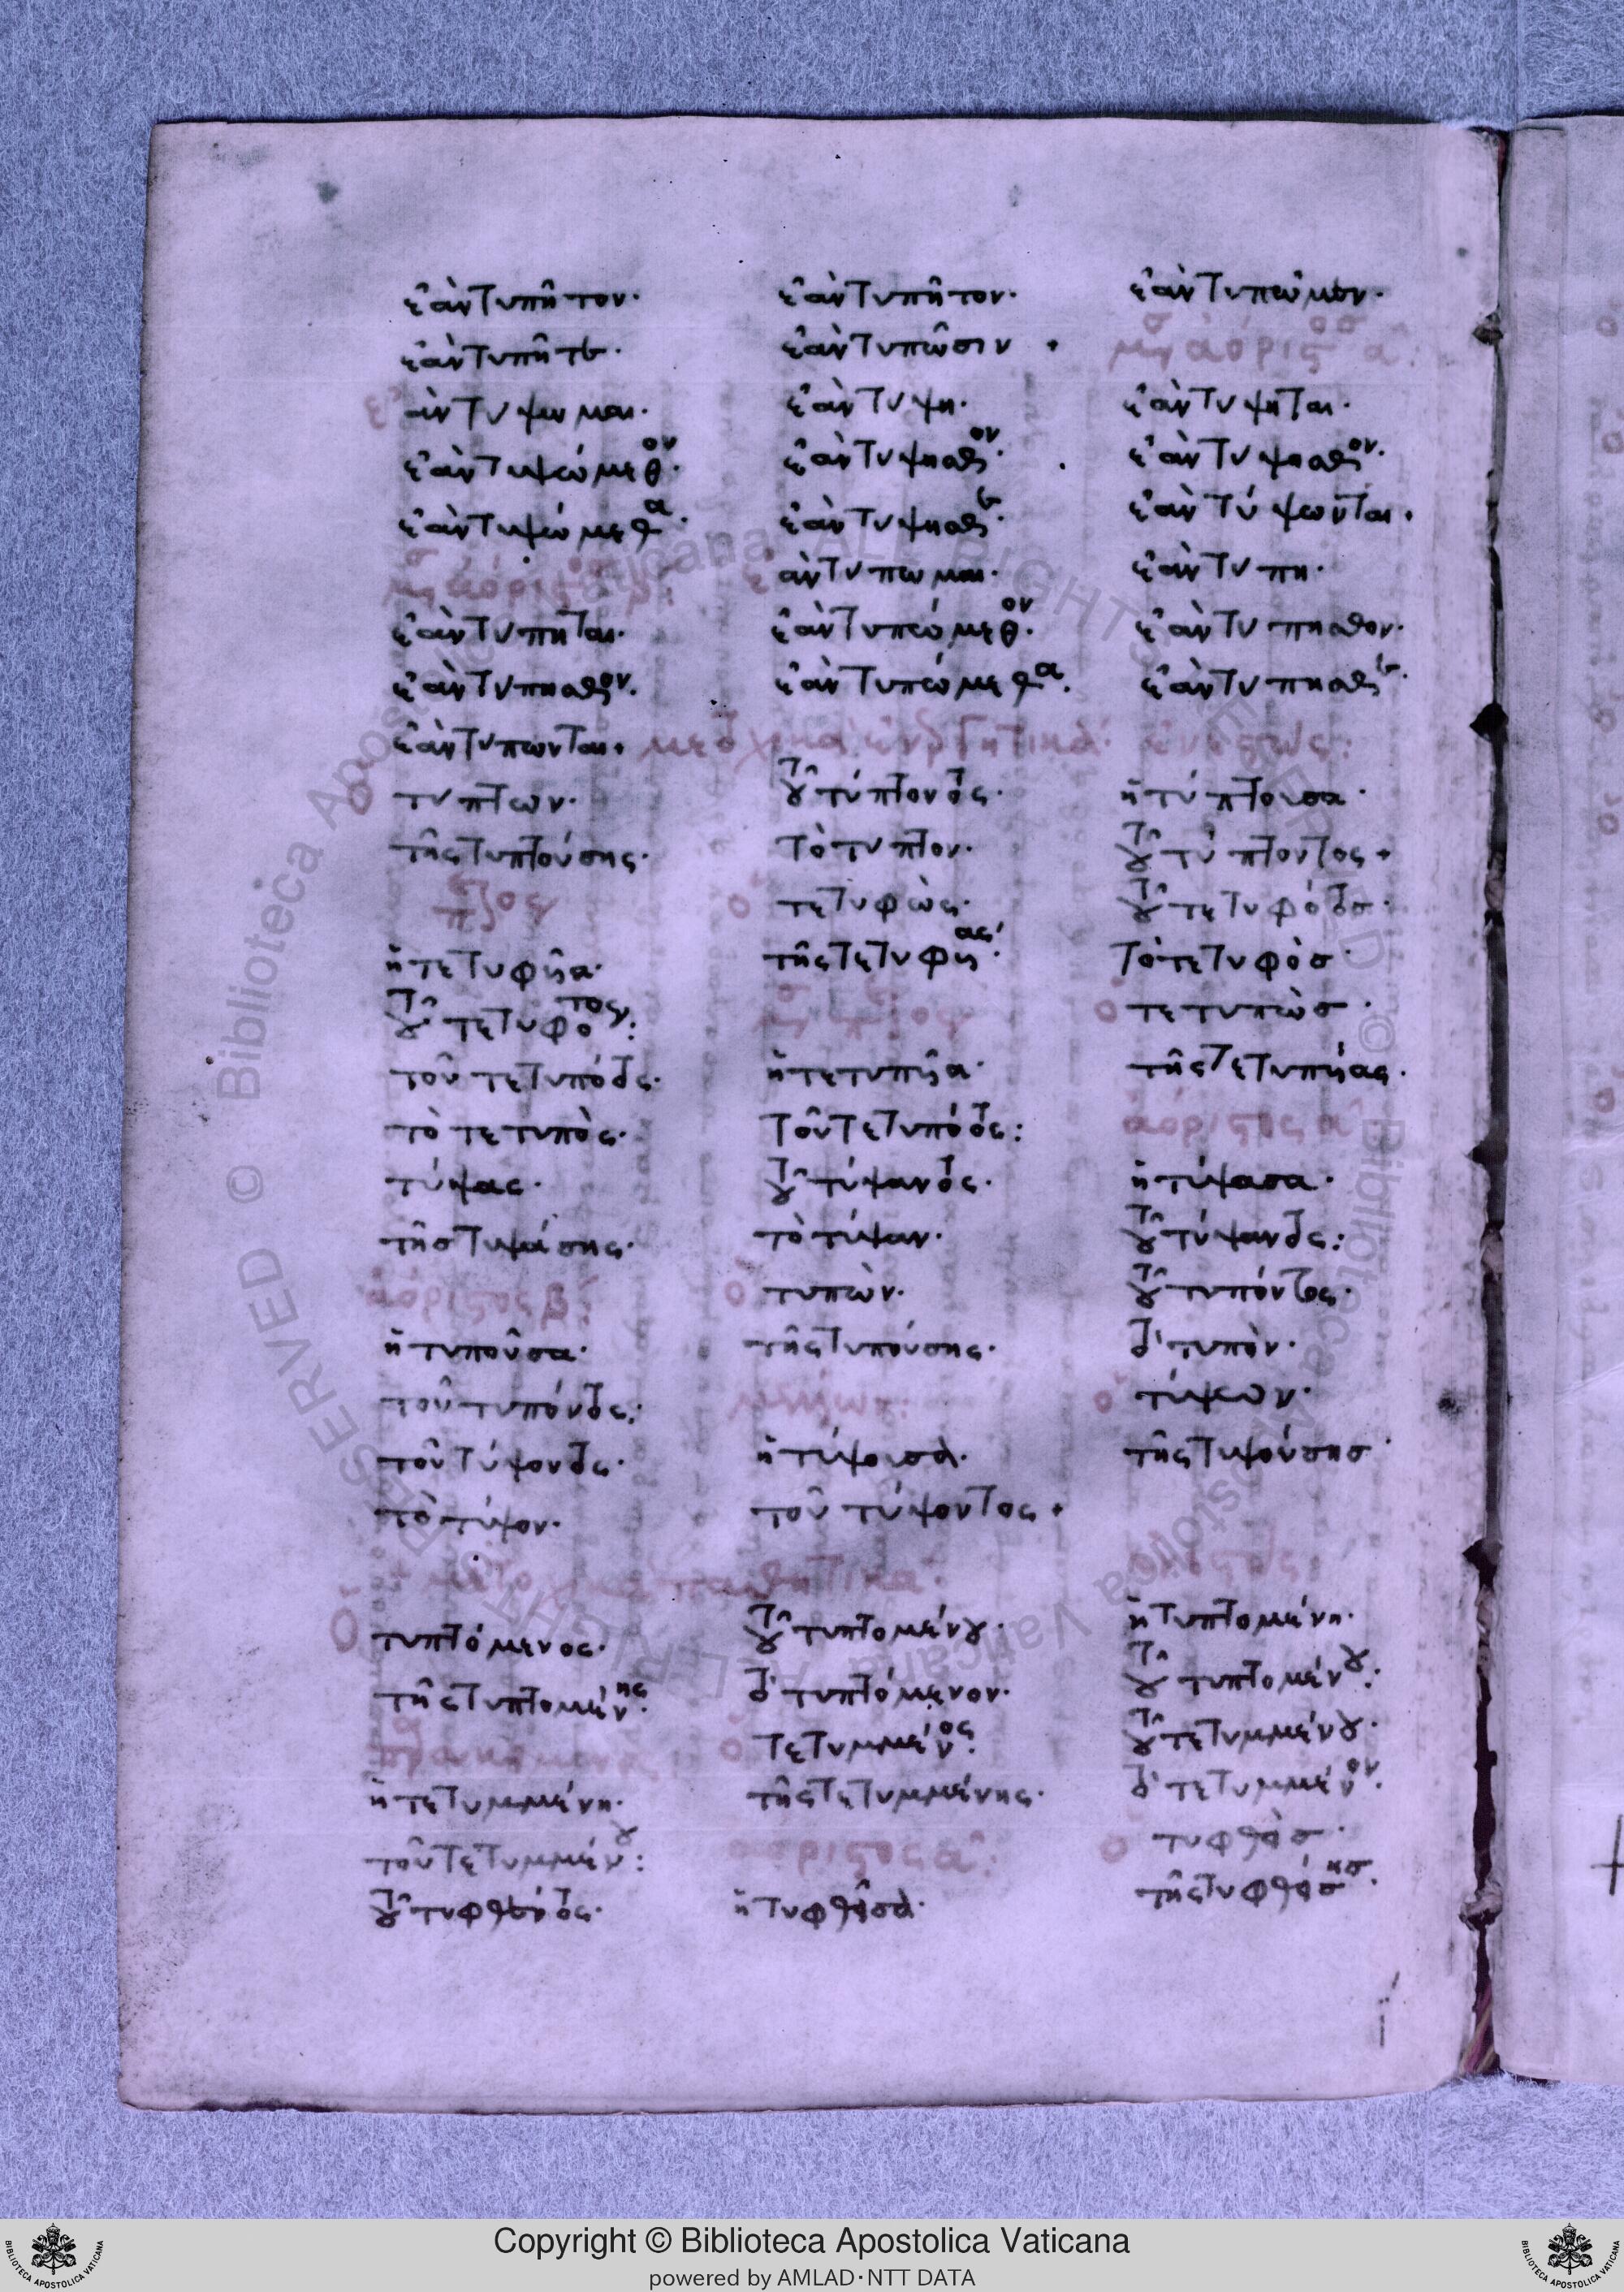 ἐὰν τυπῆτον· ἐὰν τυπῆτον· ἐὰν τυπῶμεν·
ἐὰν τυπῆτε· ἐὰν τυπῶσιν + μσ ἀόριστοσ α:
ἐὰν τυψωμαι· ἐὰν τυψη· ἐὰν τυψηται·
ἐὰν τυψώμεθον· ἐὰν τυψησθον· ἐὰν τυψησθον·
ἐὰν τυψώμεθα· ἐὰν τυψησθε· ἐὰν τύψωνται·
ἐὰν τυπωμαι· ἐὰν τυπη·
ἐὰν τυπηται· ἐὰν τυπώμεθον· ἐὰν τυπησθον·
ἐὰν τυπησθον· ἐὰν τυπώμεθα· ἐὰν τυπησθε·
ἐὰν τυπωνται+ μετοχικὰ ἐνεργητικά·
ὁ τυπτων· τοῦ τύπτοντος· ἡ τύπτουσα·
τῆς τυπτούσης· τὸ τυπτον· τοῦ τύπτοντος+
ὁ τετυφὼς· τοῦ τετυφότοσ·
ἡ τετυφῦα· τῆς τετυφυίας· τὸ τετυφὸσ·
τοῦ τετυφότος: ὁ τετυπὼσ·
τοῦ τετυπότος· ἡ τετυπῦα· τῆς τετυπυίας·
τὸ τετυπὸς· τοῦ τετυπότος: ἀόριστος α
τύψας· τοῦ τύψαντος· ἡ τύψασα·
τῆσ τυψάσης· τὸ τύψαν· τοῦ τύψαντος:
ἀόριστος β: ὁ τυπὼν· τοῦ τυπόντος·
ἡ τυποῦσα· τῆς τυπούσης· τὸ τυπὸν·
τοῦ τυπόντος: ὁ τύψων·
τοῦ τύψοντος· ἡ τύψουσα· τῆς τυψούσησ·
τὸ τύψον· τοῦ τύψοντος+
μετοχικὰ παθητικά·
ὁ τυπτόμενος· τοῦ τυπτομένου· ἡ τυπτομένη·
τῆς τυπτομένης· τὸ τυπτόμενον· τοῦ τυπτομένου:
ὁ τετυμμένος· τοῦ τετυμμένου·
ἡ τετυμμένη· τῆς τετυμμένης· τὸ τετυμμένον·
τοῦ τετυμμένου: ἀόριστος α: ὁ τυφθὲσ·
τοῦ τυφθέντος· ἡ τυφθεῖσα· τῆς τυφθείσησ·
Copyright © Biblioteca Apostolica Vaticana
powered by AMLAD·NTT DATA